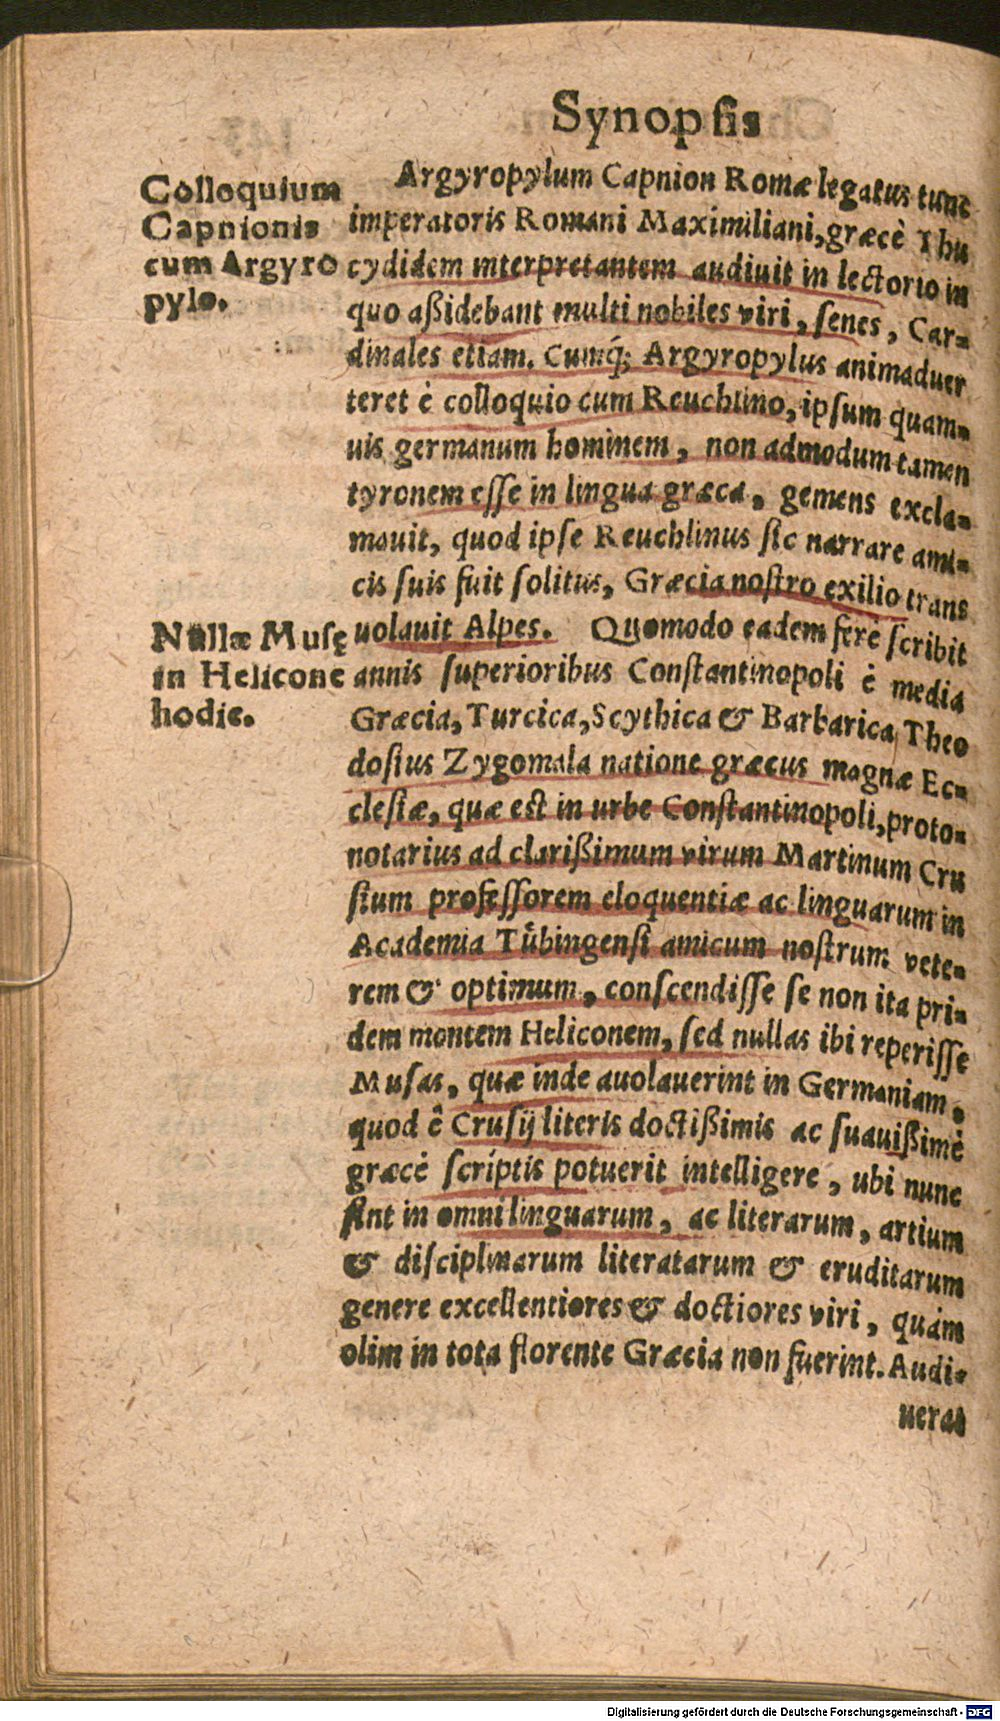 Synopsis
Colloquium
Capnionis
cum Argyro
pylo.
Argyropylum Capnion Romæ legatus tunc
imperatoris Romani Maximiliani, græcè Thu
cydidem interpretantem audiuit in lectorio in
quo aßidebant multi nobiles viri, senes, Car-
dinales etiam. Cumq́; Argyropylus animaduer
teret è colloquio cum Reuchlino, ipsum quam-
uis germanum hominem, non admodum tamen
tyronem esse in lingua græca, gemens excla-
mauit, quod ipse Reuchlinus sic narrare ami-
cis suis fuit solitus, Græcia nostro exilio trans
uolauit Alpes. Quomodo eadem ferè scribit
Nullæ Musę
in Helicone
hodie.
annis superioribus Constantinopoli è media
Græcia, Turcica, Scythica & Barbarica Theo
dosius Zygomala natione græcus magnæ Ec-
clesiæ, quæ est in urbe Constantinopoli, proto-
notarius ad clarißimum virum Martinum Cru
sium professorem eloquentiæ ac linguarum in
Academia Tůbingensi amicum nostrum vete-
rem & optimum, conscendisse se non ita pri-
dem montem Heliconem, sed nullas ibi reperisse
Musas, quæ inde auolauerint in Germaniam.
quod ê Crusij literis doctißimis ac suauißimè
græcè scriptis potuerit intelligere, ubi nunc
sint in omni linguarum, ac literarum, artium
& disciplinarum literatarum & eruditarum
genere excellentiores & doctiores viri, quàm
olim in tota florente Græcia non fuerint. Audi-
uerat
Digitalisierung gefördert durch die Deutsche Forschungsgemeinschaft - DFG